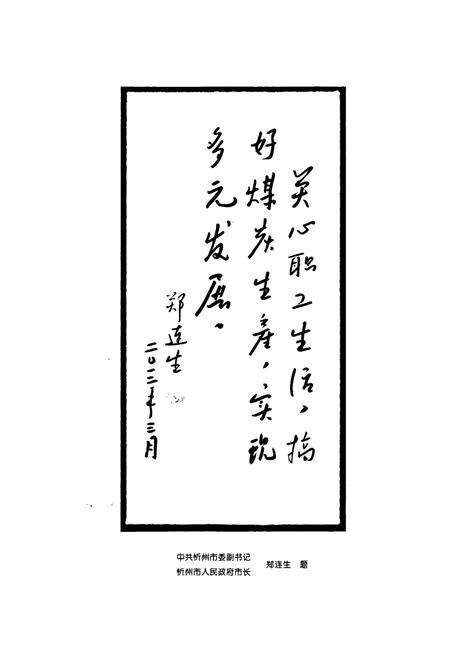 关心职工生活，搞
好煤炭生产，实现
多元发展。
郑连生
二〇一二年三月
中共忻州市委副书记
忻州市人民政府市长
郑连生 题